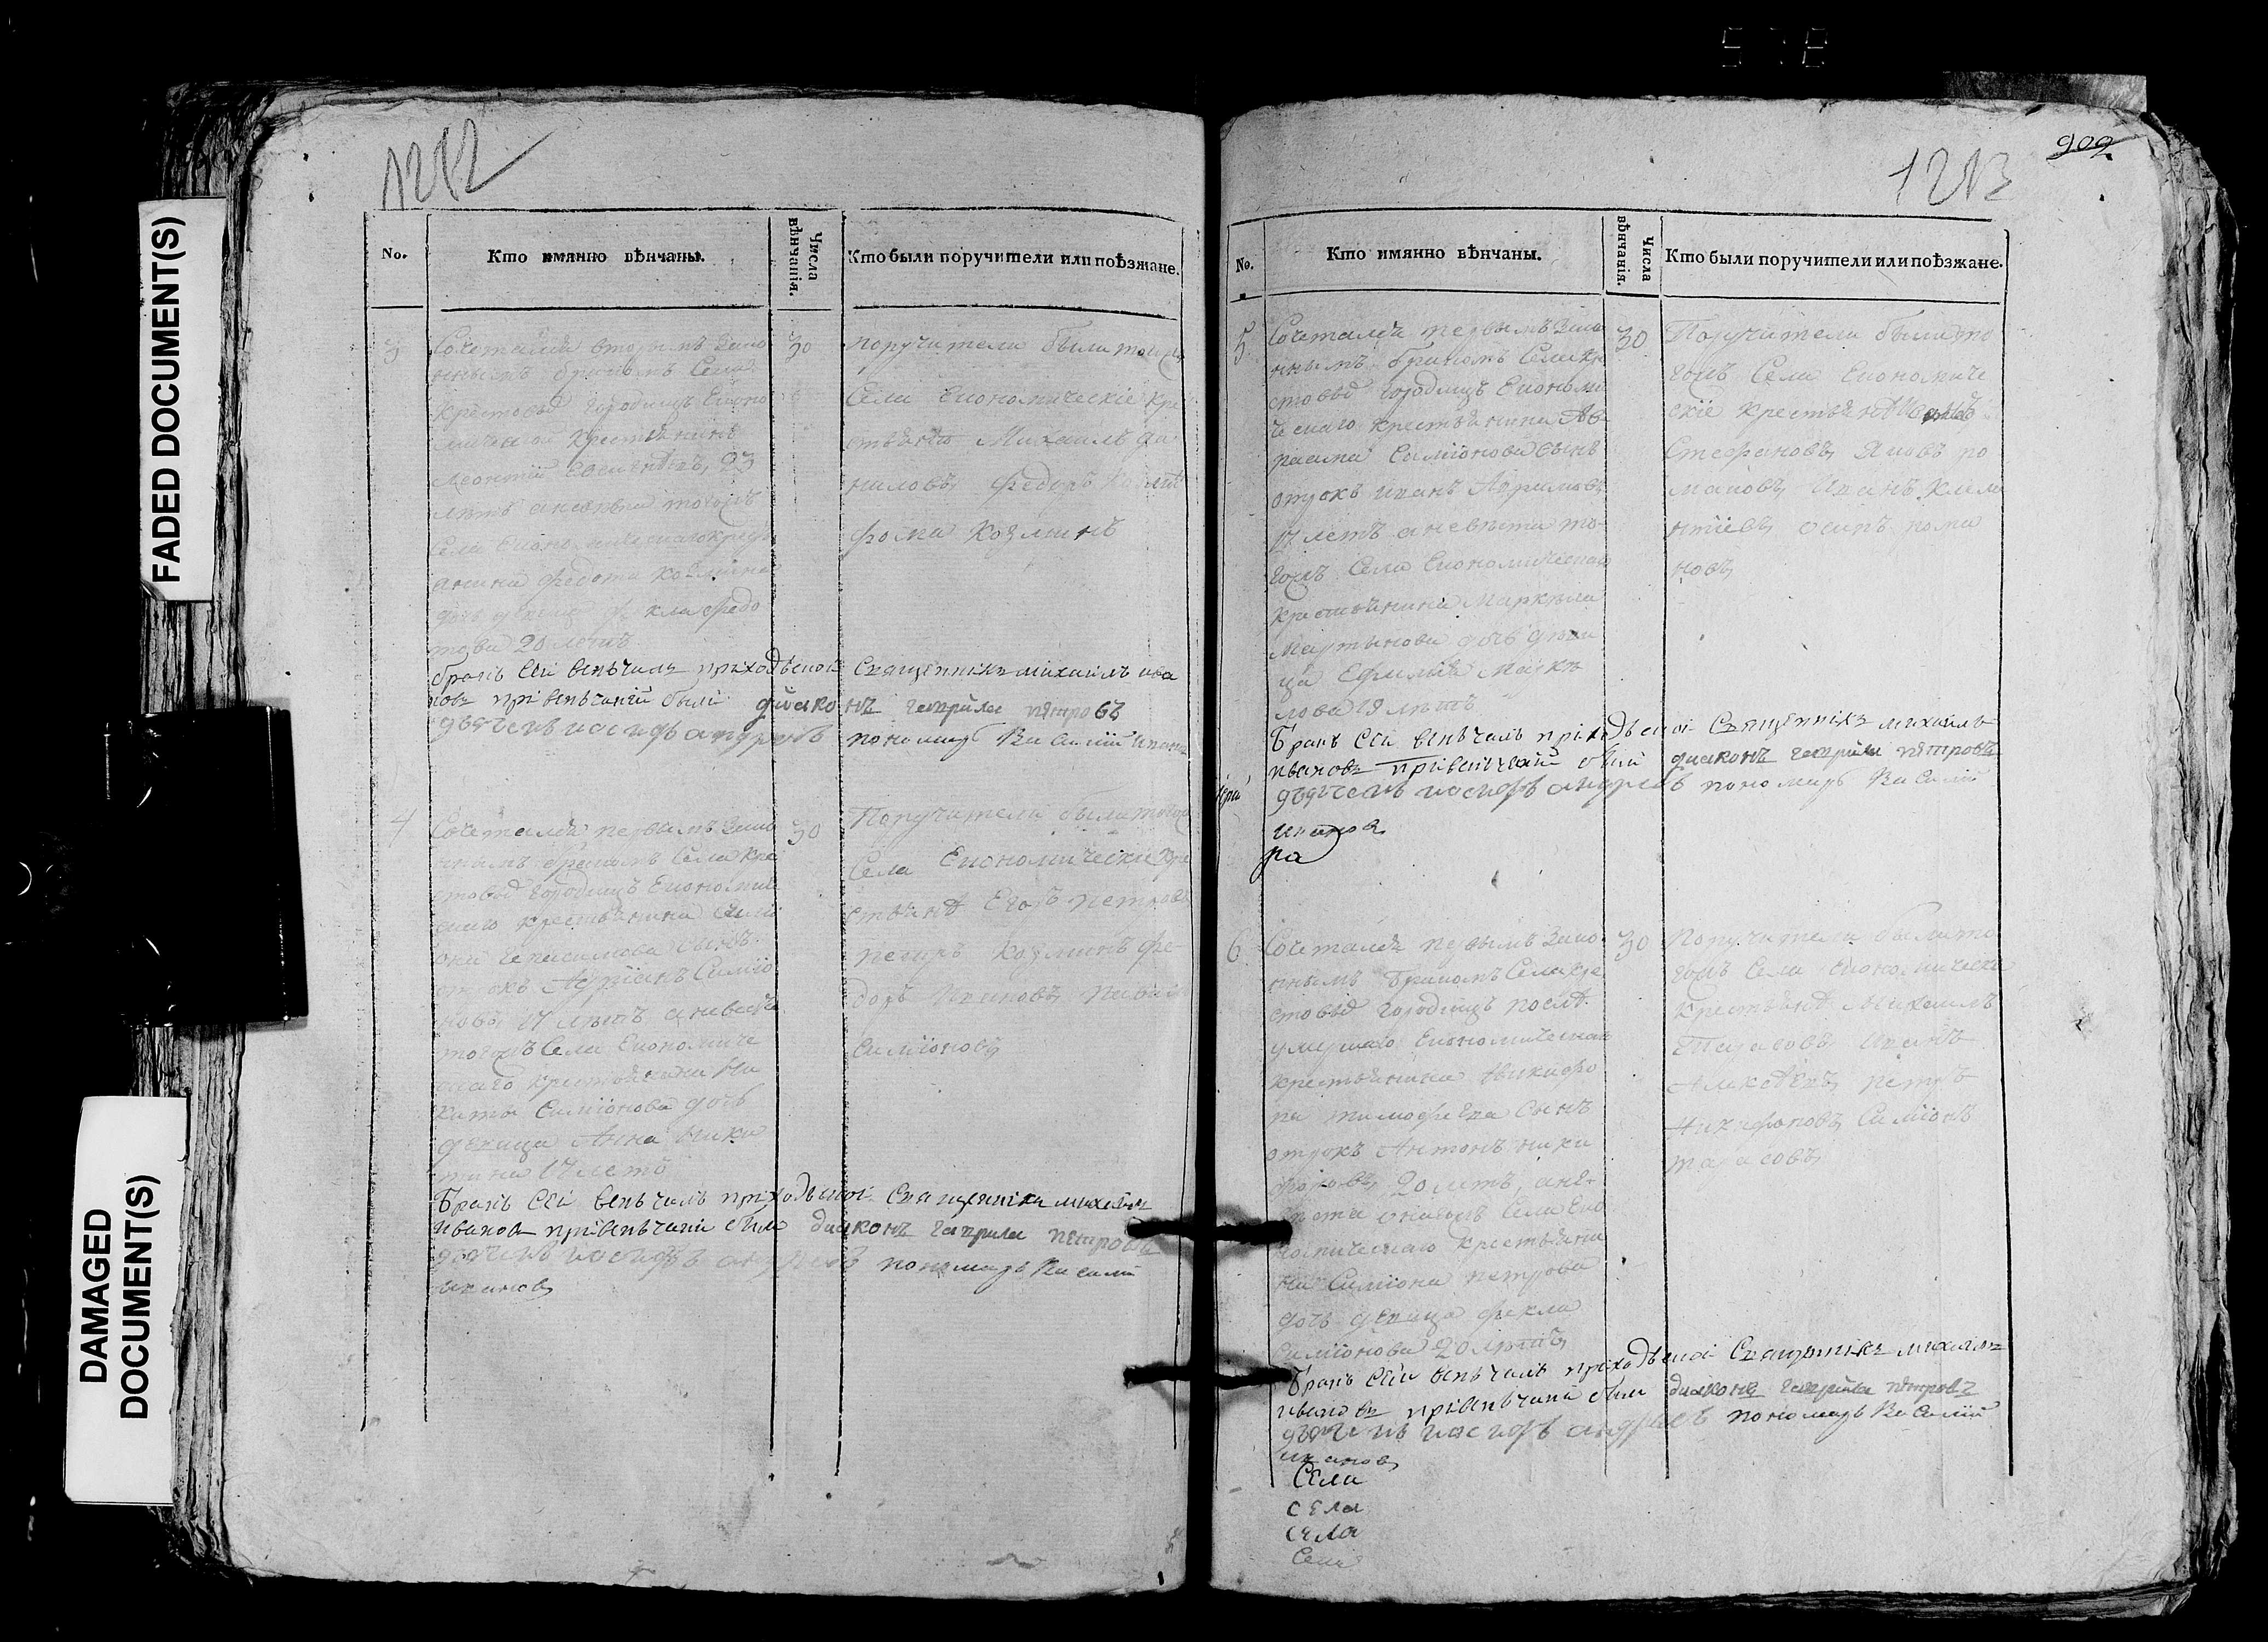 FADED DOCUMENT(S)
DAMAGED
DOCUMENT(S)
1212
No.
Кто имянно вѣнчаны.
Числа
вѣнчанія.
Кто были поручители или поѣзжане.
3
Сочетался вторымъ зако
ннымъ бракомъ села
Крестовыхъ городищъ Еконо
крестьянинъ
Леонтій 23
летъ
села
Федота Козмина
дочь Фекла Федо
това 20 летъ
30
Поручители были тогожъ
села Економическіе кре
стьяне Михаилъ Да
ниловъ Федоръ
Фома Козминъ
бракъ сей венчалъ приходской священникъ михаилъ ива
новъ при венчаніи были диаконъ гаврила петровъ
дьячекъ иосифъ андреевъ пономарь Василий Иванов
4
Сочетался первымъ зако
ннымъ бракомъ села Кре
стовыхъ городищъ Економиче
скаго крестьянина Симео
на Герасимова сынъ
отрокъ Симіо
новъ 17 летъ а невеста
тогожъ села Економиче
скаго крестьянина Ни
киты Симіонова дочь
девица Анна Ники
тина 17 летъ
30
Поручители были тогожъ
села Економические кре
стьяне Егоръ Петровъ
Петръ Козминъ Фе
доръ Ивановъ
Симіоновъ
Бракъ сей венчалъ приходской священникъ михаилъ
Ивановъ при венчании были диаконъ гаврила петровъ
дьячекъ иосифъ андреевъ пономарь Василий
Ивановъ
902
1213
No.
Кто имянно вѣнчаны.
Числа
вѣнчанія.
Кто были поручители или поѣзжане.
5
Сочетался первымъ зако
ннымъ бракомъ села Кре
стовыхъ городищъ Економи
ческаго крестьянина Ав
раама Симіонова сынъ
отрокъ Иванъ Абрамовъ
17 летъ а невеста то
гожъ села Економическаго
крестьянина Маркела
Мартынова дочь деви
ца Ефимия Марке
лова 19 летъ
30
Поручители были то
гожъ села Економиче
скіе крестьяне
Стефановъ Яковъ Ро
мановъ Иванъ Клеме
нтіевъ Осипъ Рома
новъ
Бракъ сей венчалъ приходской священникъ михаилъ
ивановъ при венчаніи были диаконъ гаврила петровъ
дьячекъ иосифъ андреевъ пономарь Василий
Ивановъ
ра
6
Сочетался первымъ зако
ннымъ бракомъ села Кре
стовыхъ городищъ после
умершаго Економическаго
крестьянина Никифо
ра Тимофеева сынъ
отрокъ Антонъ Ники
форовъ 20 летъ, а не
веста онагожъ села Еко
номическаго крестьяни
на Симіона Петрова
дочь девица Фекла
Симіонова 20 летъ
30
Поручители были то
гожъ села Економически
крестьяне Михаилъ
Тарасовъ Иванъ
Алексеевъ Петръ
Никифоровъ Симіонъ
Тарасовъ
Бракъ сей венчалъ приходской священникъ михаилъ
ивановъ при венчании были диаконъ гаврила петровъ
дьячекъ иосифъ андреевъ пономарь Василий
Ивановъ
Села
села
села
Села